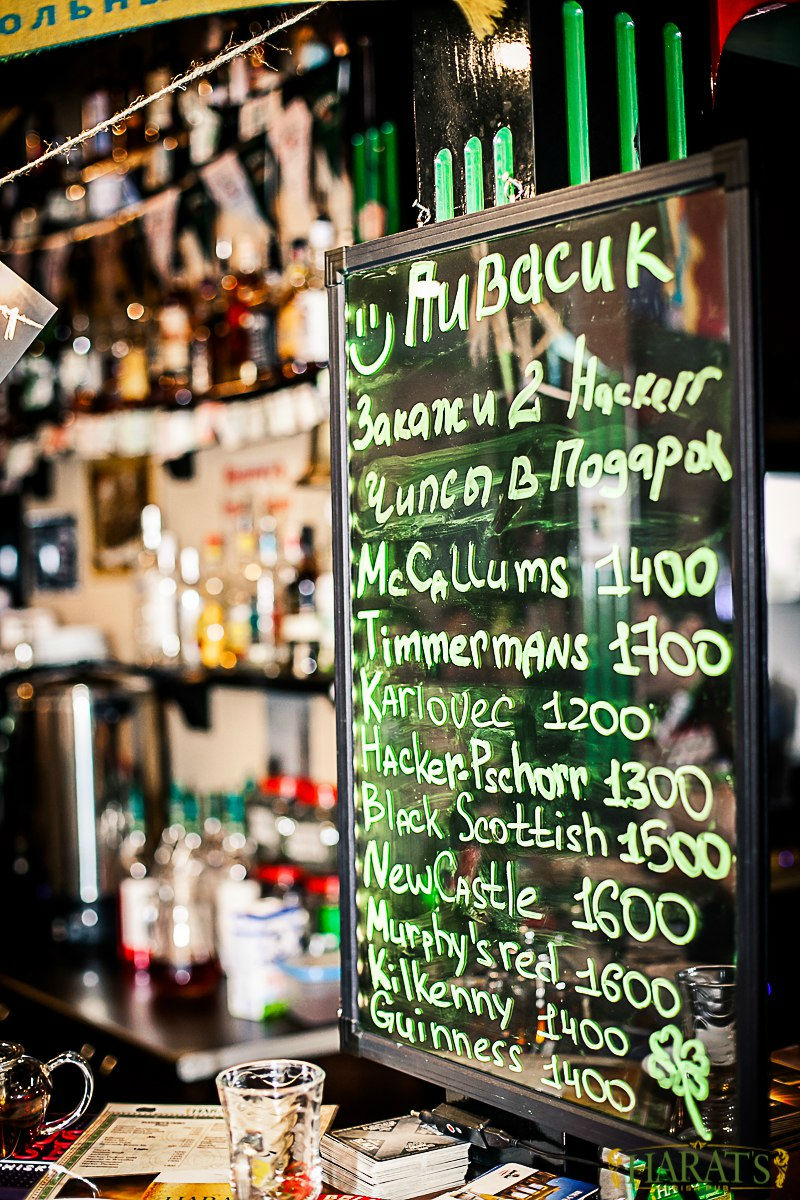 ОЛЬН
Пивасик
Закажи 2 Hackerr
Чипсы в Подарок
McCallums 1400
Timmermans 1700
Karlovec 1200
Hacker-Pschorr 1300
Black Scottish 1500
NewCastle 1600
Murphy's red 1600
Kilkenny 1400
Guinness 1400
HARAT'S